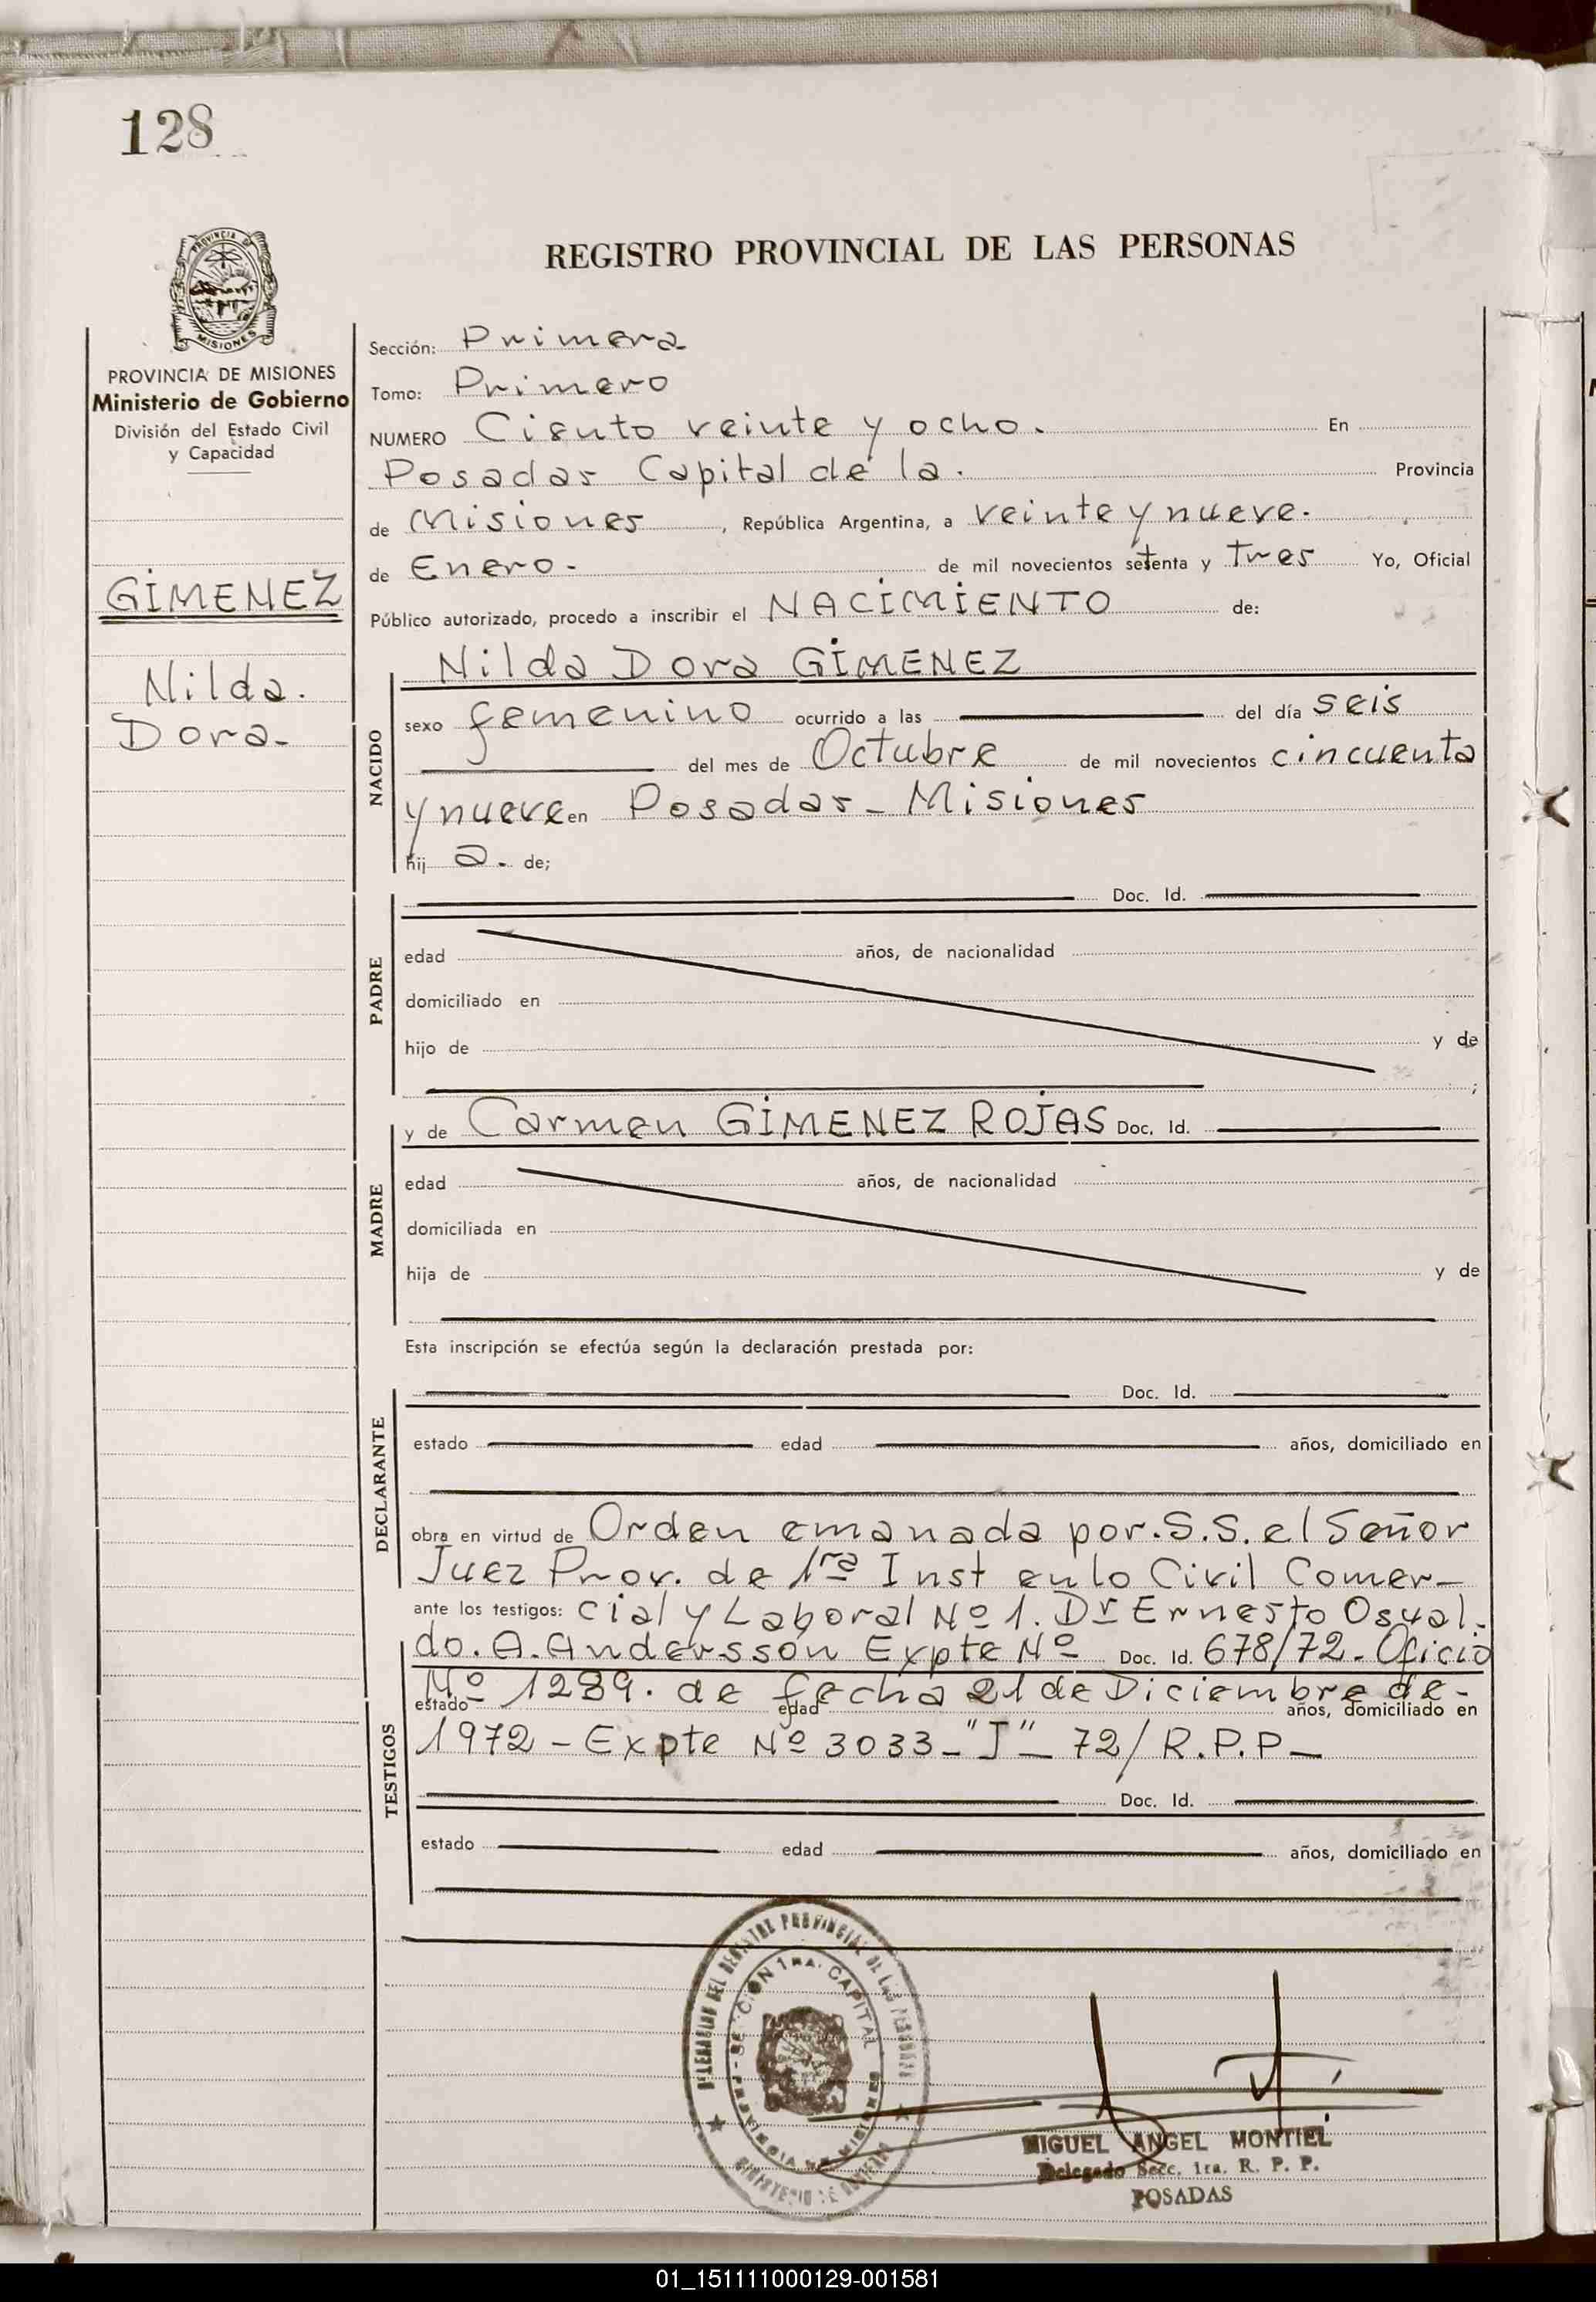 128
REGISTRO PROVINCIAL DE LAS PERSONAS
MISIONES
PROVINCIA DE MISIONES
Ministerio de Gobierno
División del Estado Civil
y Capacidad
GIMENEZ
Nilda.
Dora-
Sección: Primera
Tomo: Primero
NUMERO Ciento veinte y ocho. En
Posadas Capital de la. Provincia
de Misiones, República Argentina, a veinte y nueve.
de Enero.- de mil novecientos setenta y tres Yo, Oficial
Público autorizado, procedo a inscribir el NACIMIENTO de:
NACIDO
Nilda Dora GIMENEZ
sexo femenino ocurrido a las del día seis
del mes de Octubre de mil novecientos cincuenta
y nueve en Posadas - Misiones
hij a. de;
PADRE
Doc. Id.
edad años, de nacionalidad
domiciliado en
hijo de y de
;
MADRE
y de Carmen GIMENEZ ROJAS Doc. Id.
edad años, de nacionalidad
domiciliada en
hija de y de
Esta inscripción se efectúa según la declaración prestada por:
DECLARANTE
Doc. Id.
estado edad años, domiciliado en
obra en virtud de Orden emanada por. S.S. el Señor
Juez Prov. de 1ra Inst en lo Civil Comer-
ante los testigos: cial y Laboral Nº 1. Dr Ernesto Osval-
do. A. Andersson Expte Nº Doc. Id. 678/72. Oficio
TESTIGOS
Nº 1289. de fecha 21 de Diciembre de-
estado edad años, domiciliado en
1972 - Expte Nº 3033-"J"- 72/ R.P.P-
Doc. Id.
estado edad años, domiciliado en
SECCION 1RA. CAPITAL
MIGUEL ANGEL MONTIEL
Delegado Secc. 1ra. R. P. P.
POSADAS
01_151111000129-001581